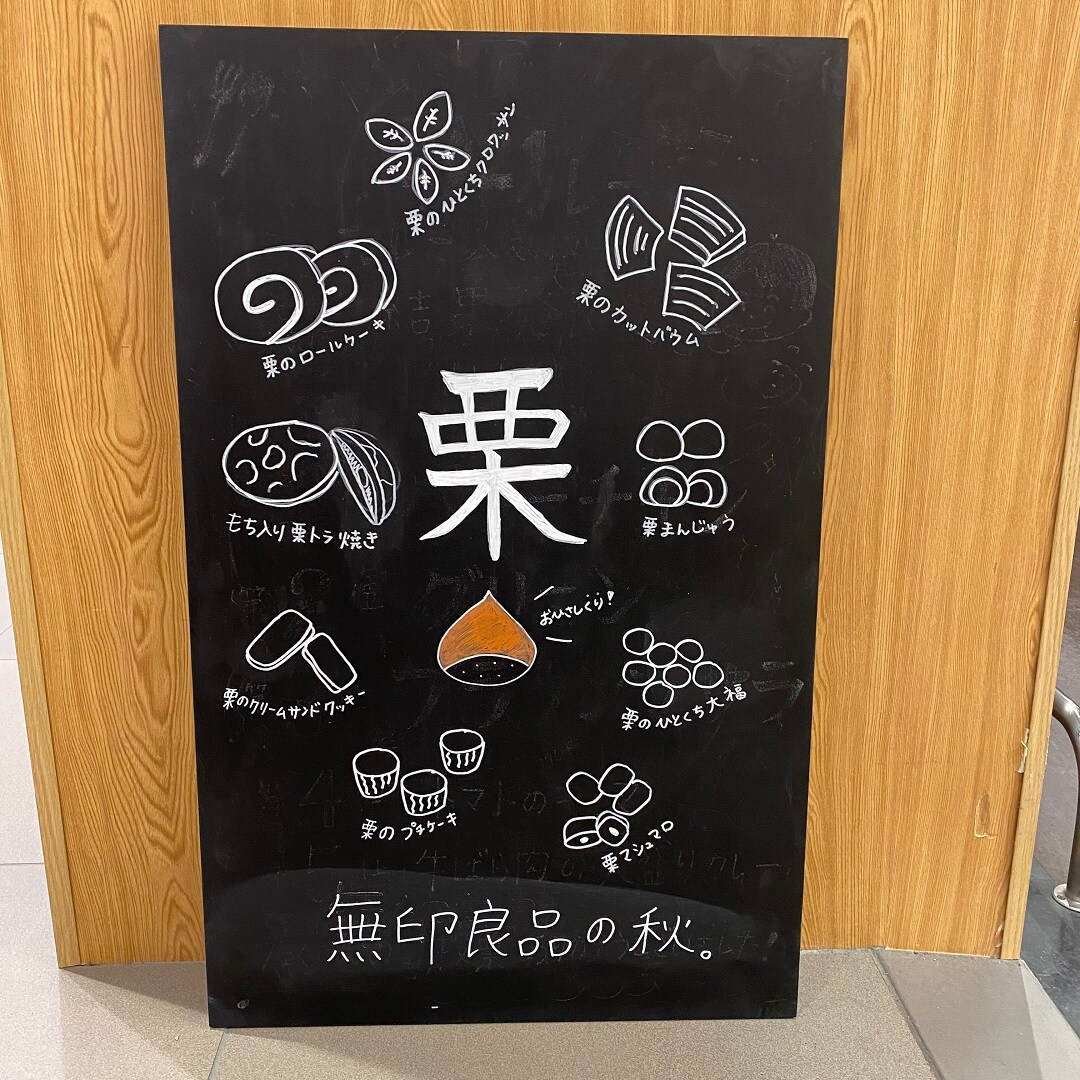 栗のひとくちクロワッサン
栗のカットバウム
栗のロールケーキ
栗
もち入り栗トラ焼き
栗まんじゅう
おひさしぶり!
栗のクリームサンドクッキー
栗のひとくち大福
栗のプチケーキ
栗マシュマロ
無印良品の秋。